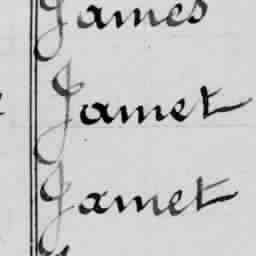 James
Jamet
Jamet